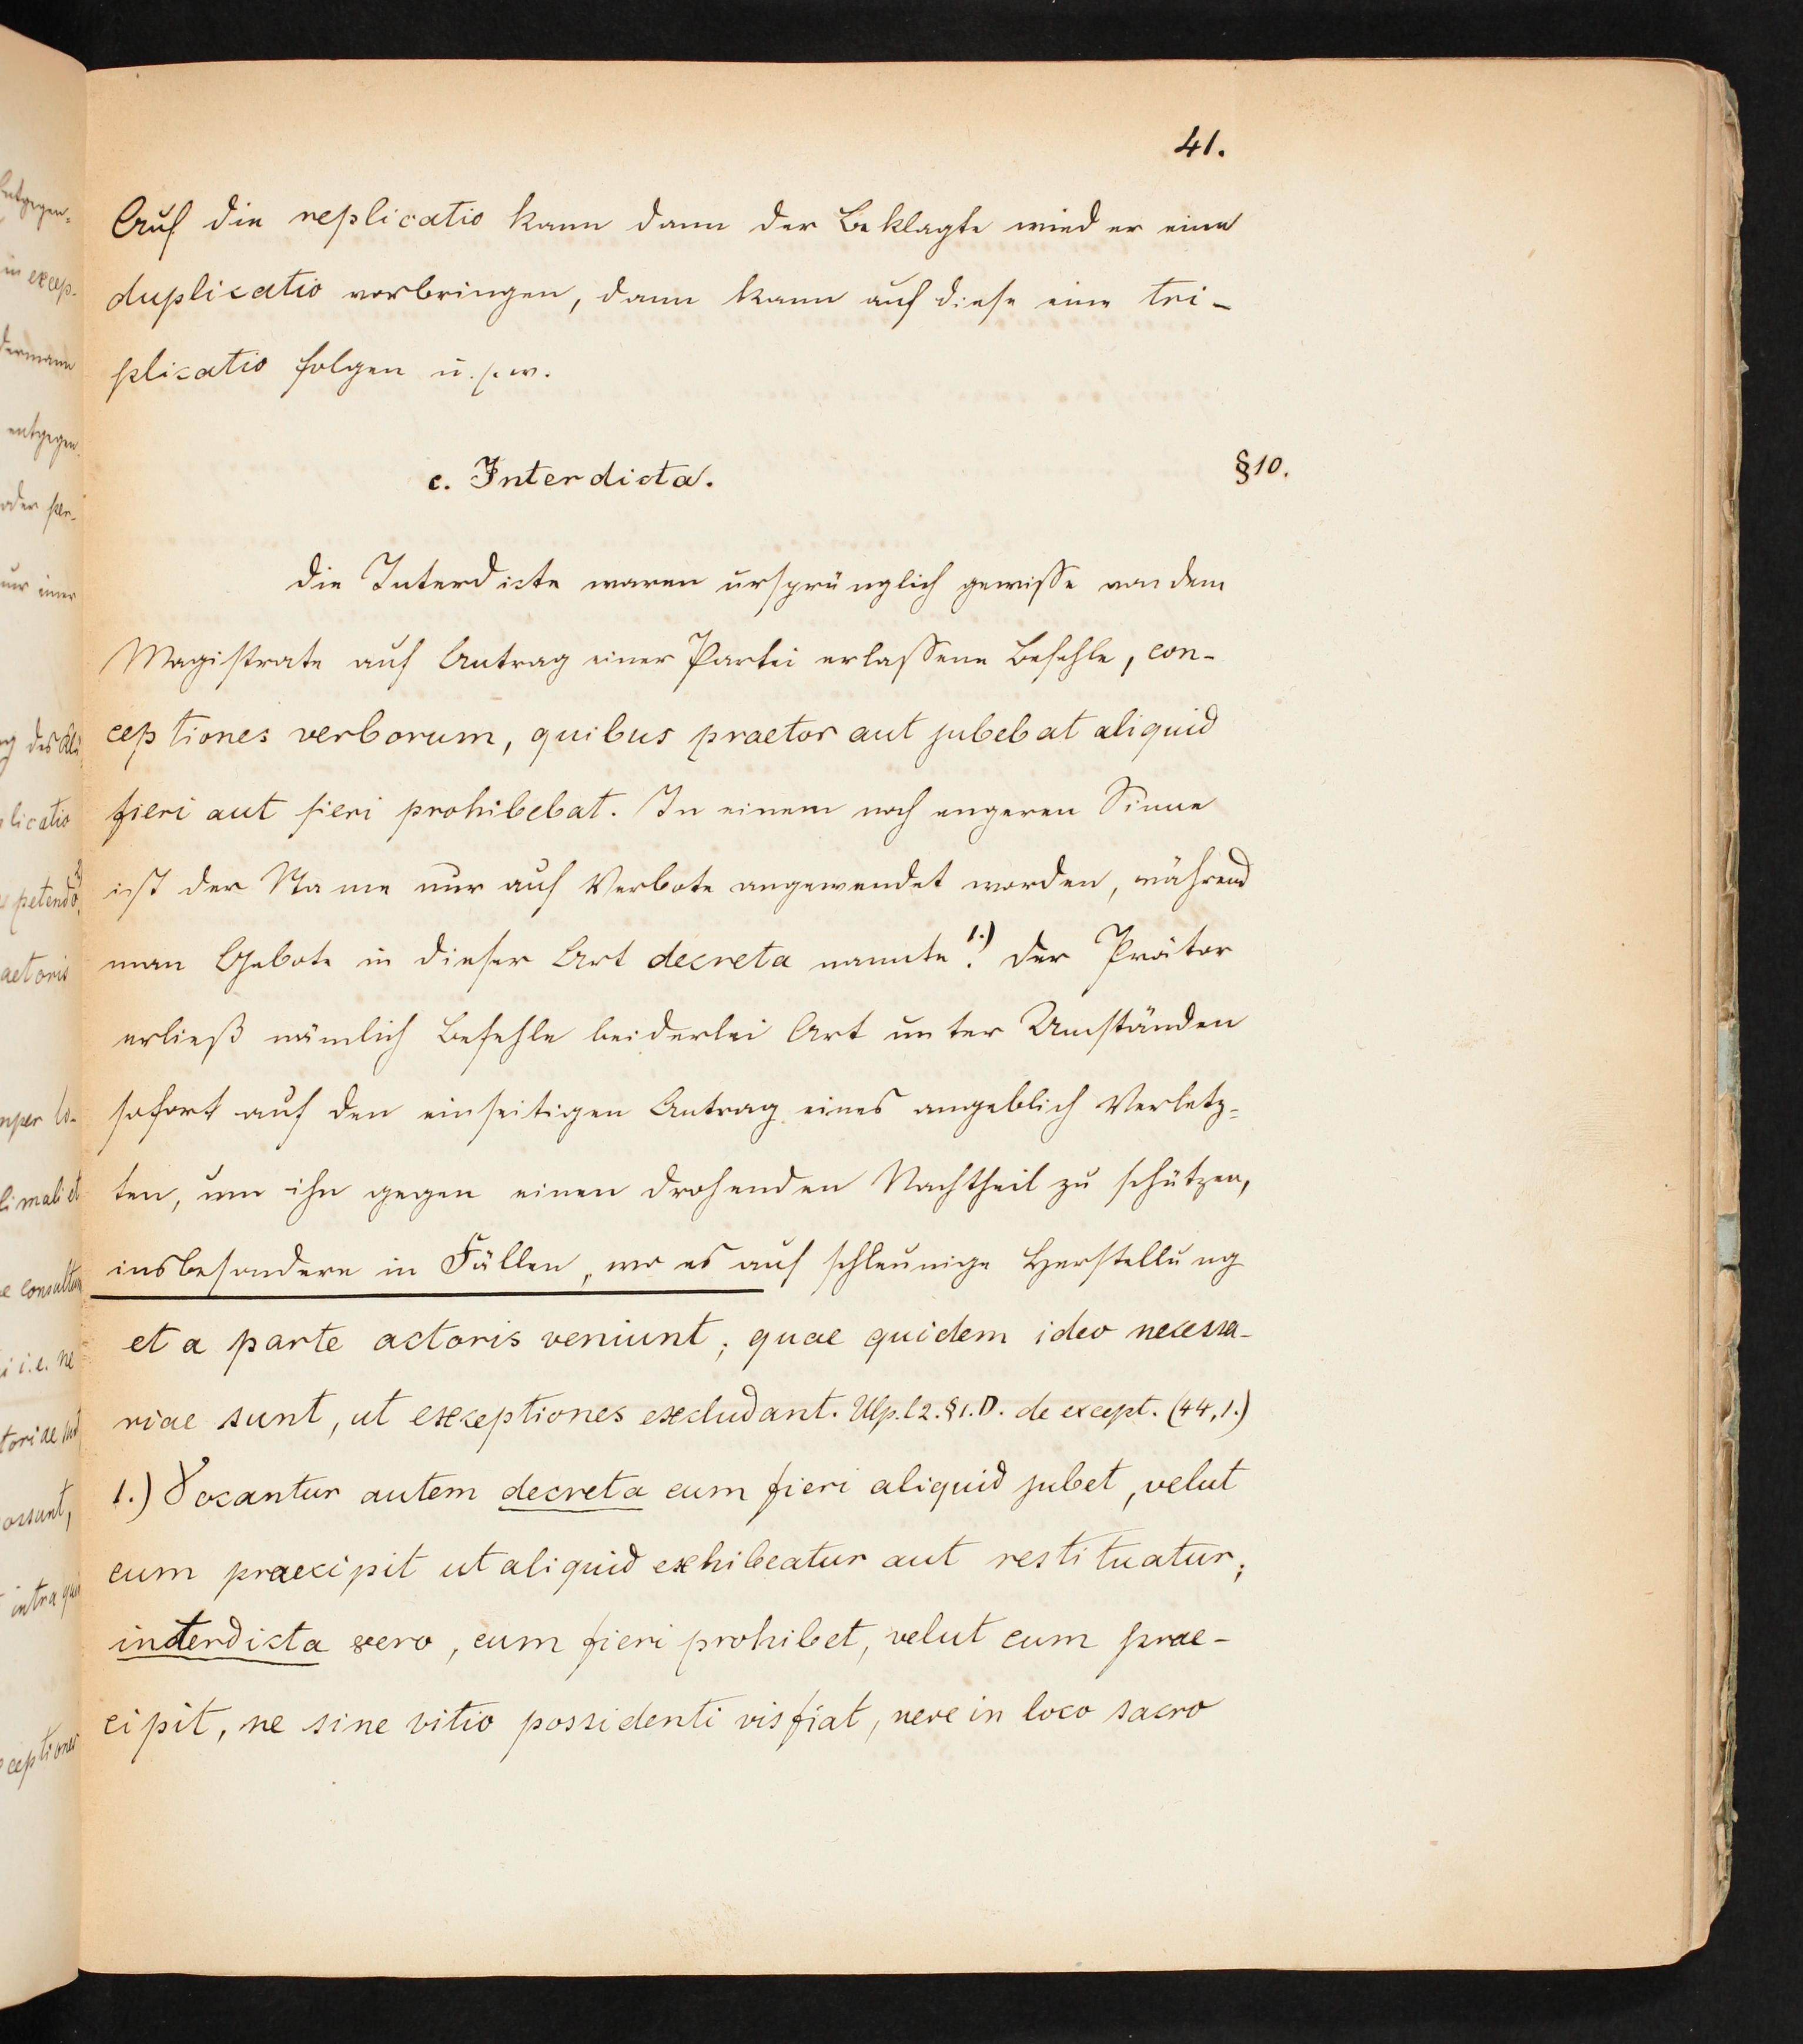 41.
Auf die replicatio kann dann der Beklagte wieder eine
duplicatio vorbringen, dann kann auf diese eine tri-
plicatio folgen u. s. w.
c. Interdicta.
§10.
Die Interdicte waren ursprünglich gewisse von dem
Magistrate auf Antrag einer Partei erlassene Befehle, con-
ceptiones verborum, quibus praetor aut jubebat aliquid
fieri aut fieri prohibebat. In einem noch engeren Sinne
ist der Name nur auf Verbote angewendet worden, während
man Gebote in dieser Art decreta nannte 1.). Der Prätor
erließ nämlich Befehle beiderlei Art unter Umständen
sofort auf den einseitigen Antrag eines angeblich Verletz-
ten, um ihn gegen einen drohenden Nachtheil zu schützen,
insbesondere in Fällen, wo es auf schleunige Herstellung
et a parte actoris veniunt, quae quidem ideo necessa-
riae sunt, ut exceptiones excludant. Ulp. l 2. §1. D. de except. (44,1.)
1.) Vocantur autem decreta cum fieri aliquid jubet, velut
cum praecipit ut aliquid exhibeatur aut restituatur;
interdicta vero, cum fieri prohibet, velut cum prae-
cipit, ne sine vitio possidenti vis fiat, neve in loco sacro